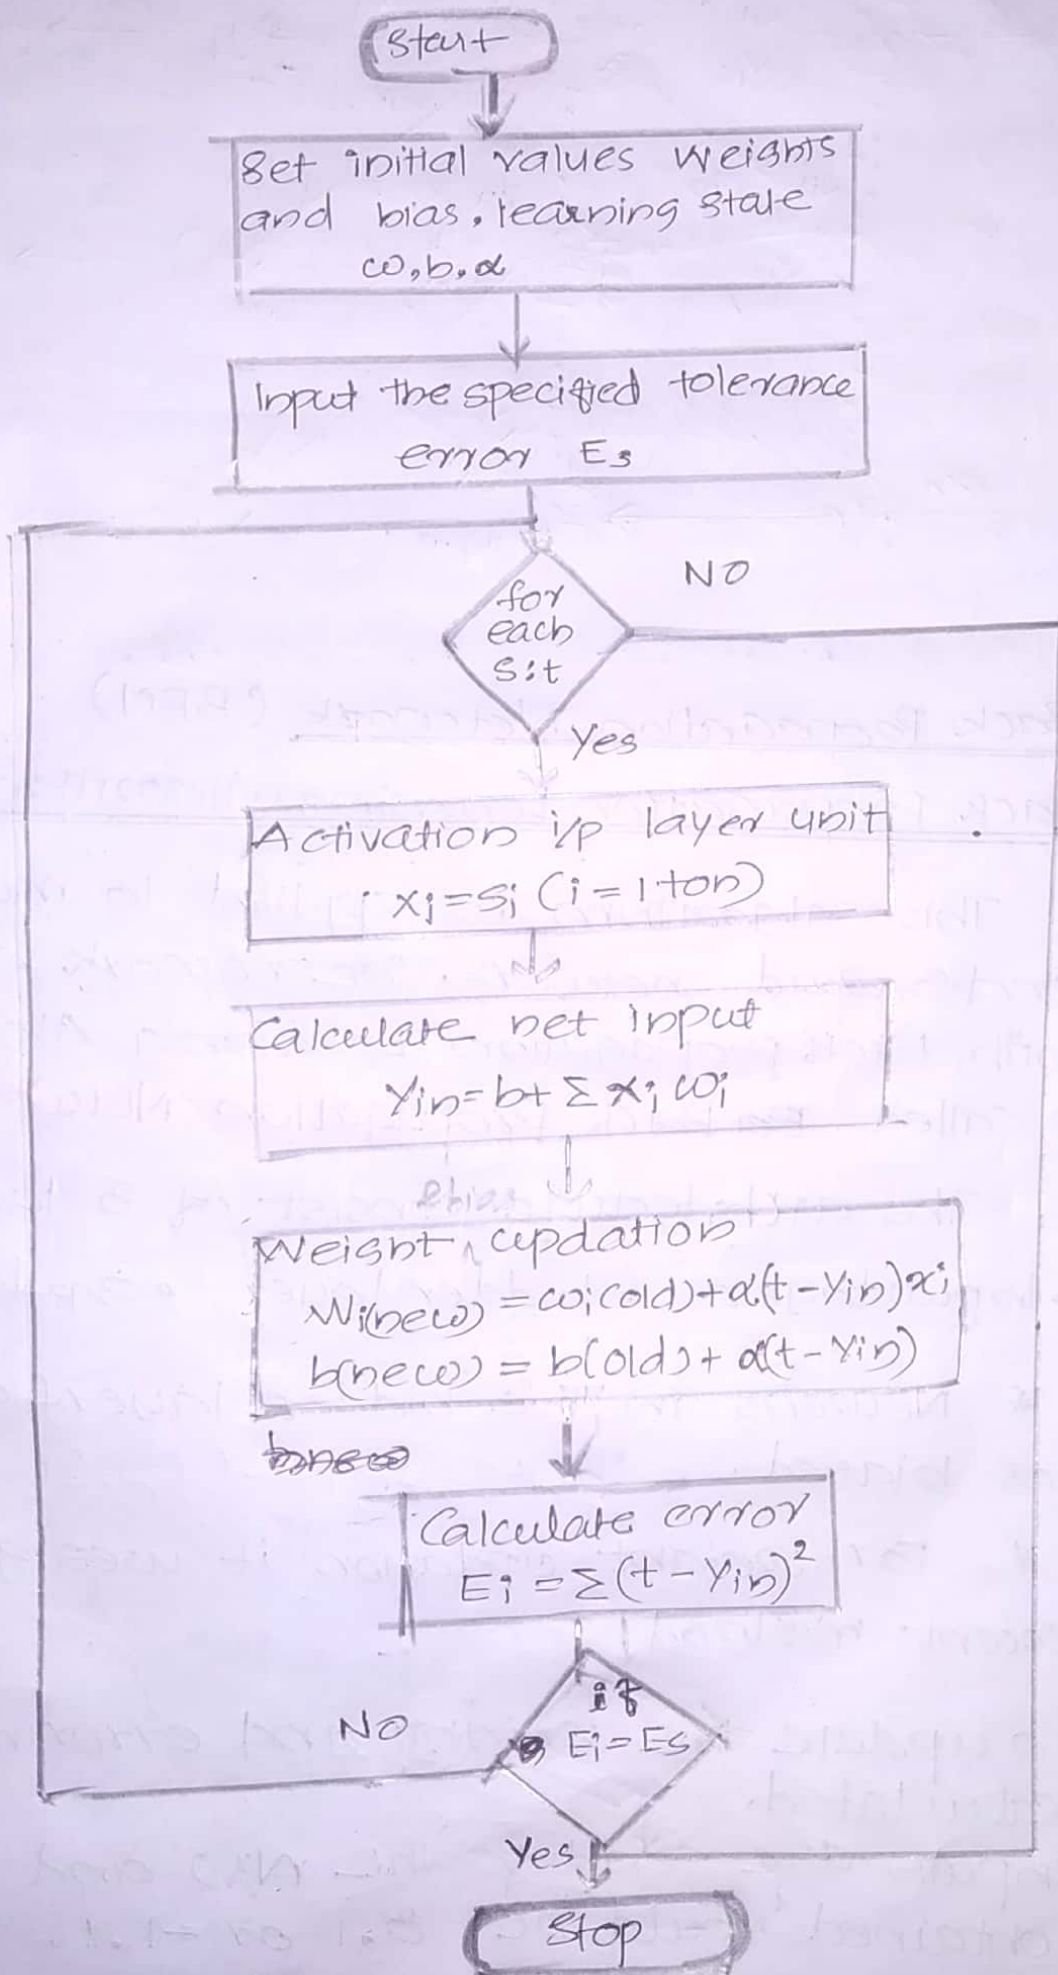 Start
Set initial values weights
and bias, learning state
ω, b, α
Input the specified tolerance
error Es
for
each
s:t
NO
Yes
Activation i/p layer unit
xi = si (i = 1 to n)
Calculate net input
Yin = b + Σ xi ωi
&bias
Weight ^ updation
Wi(new) = ωi(old) + α(t - Yin)xi
b(new) = b(old) + α(t - Yin)
Calculate error
Ei = Σ(t - Yin)²
if
Ei = Es
NO
Yes
Stop